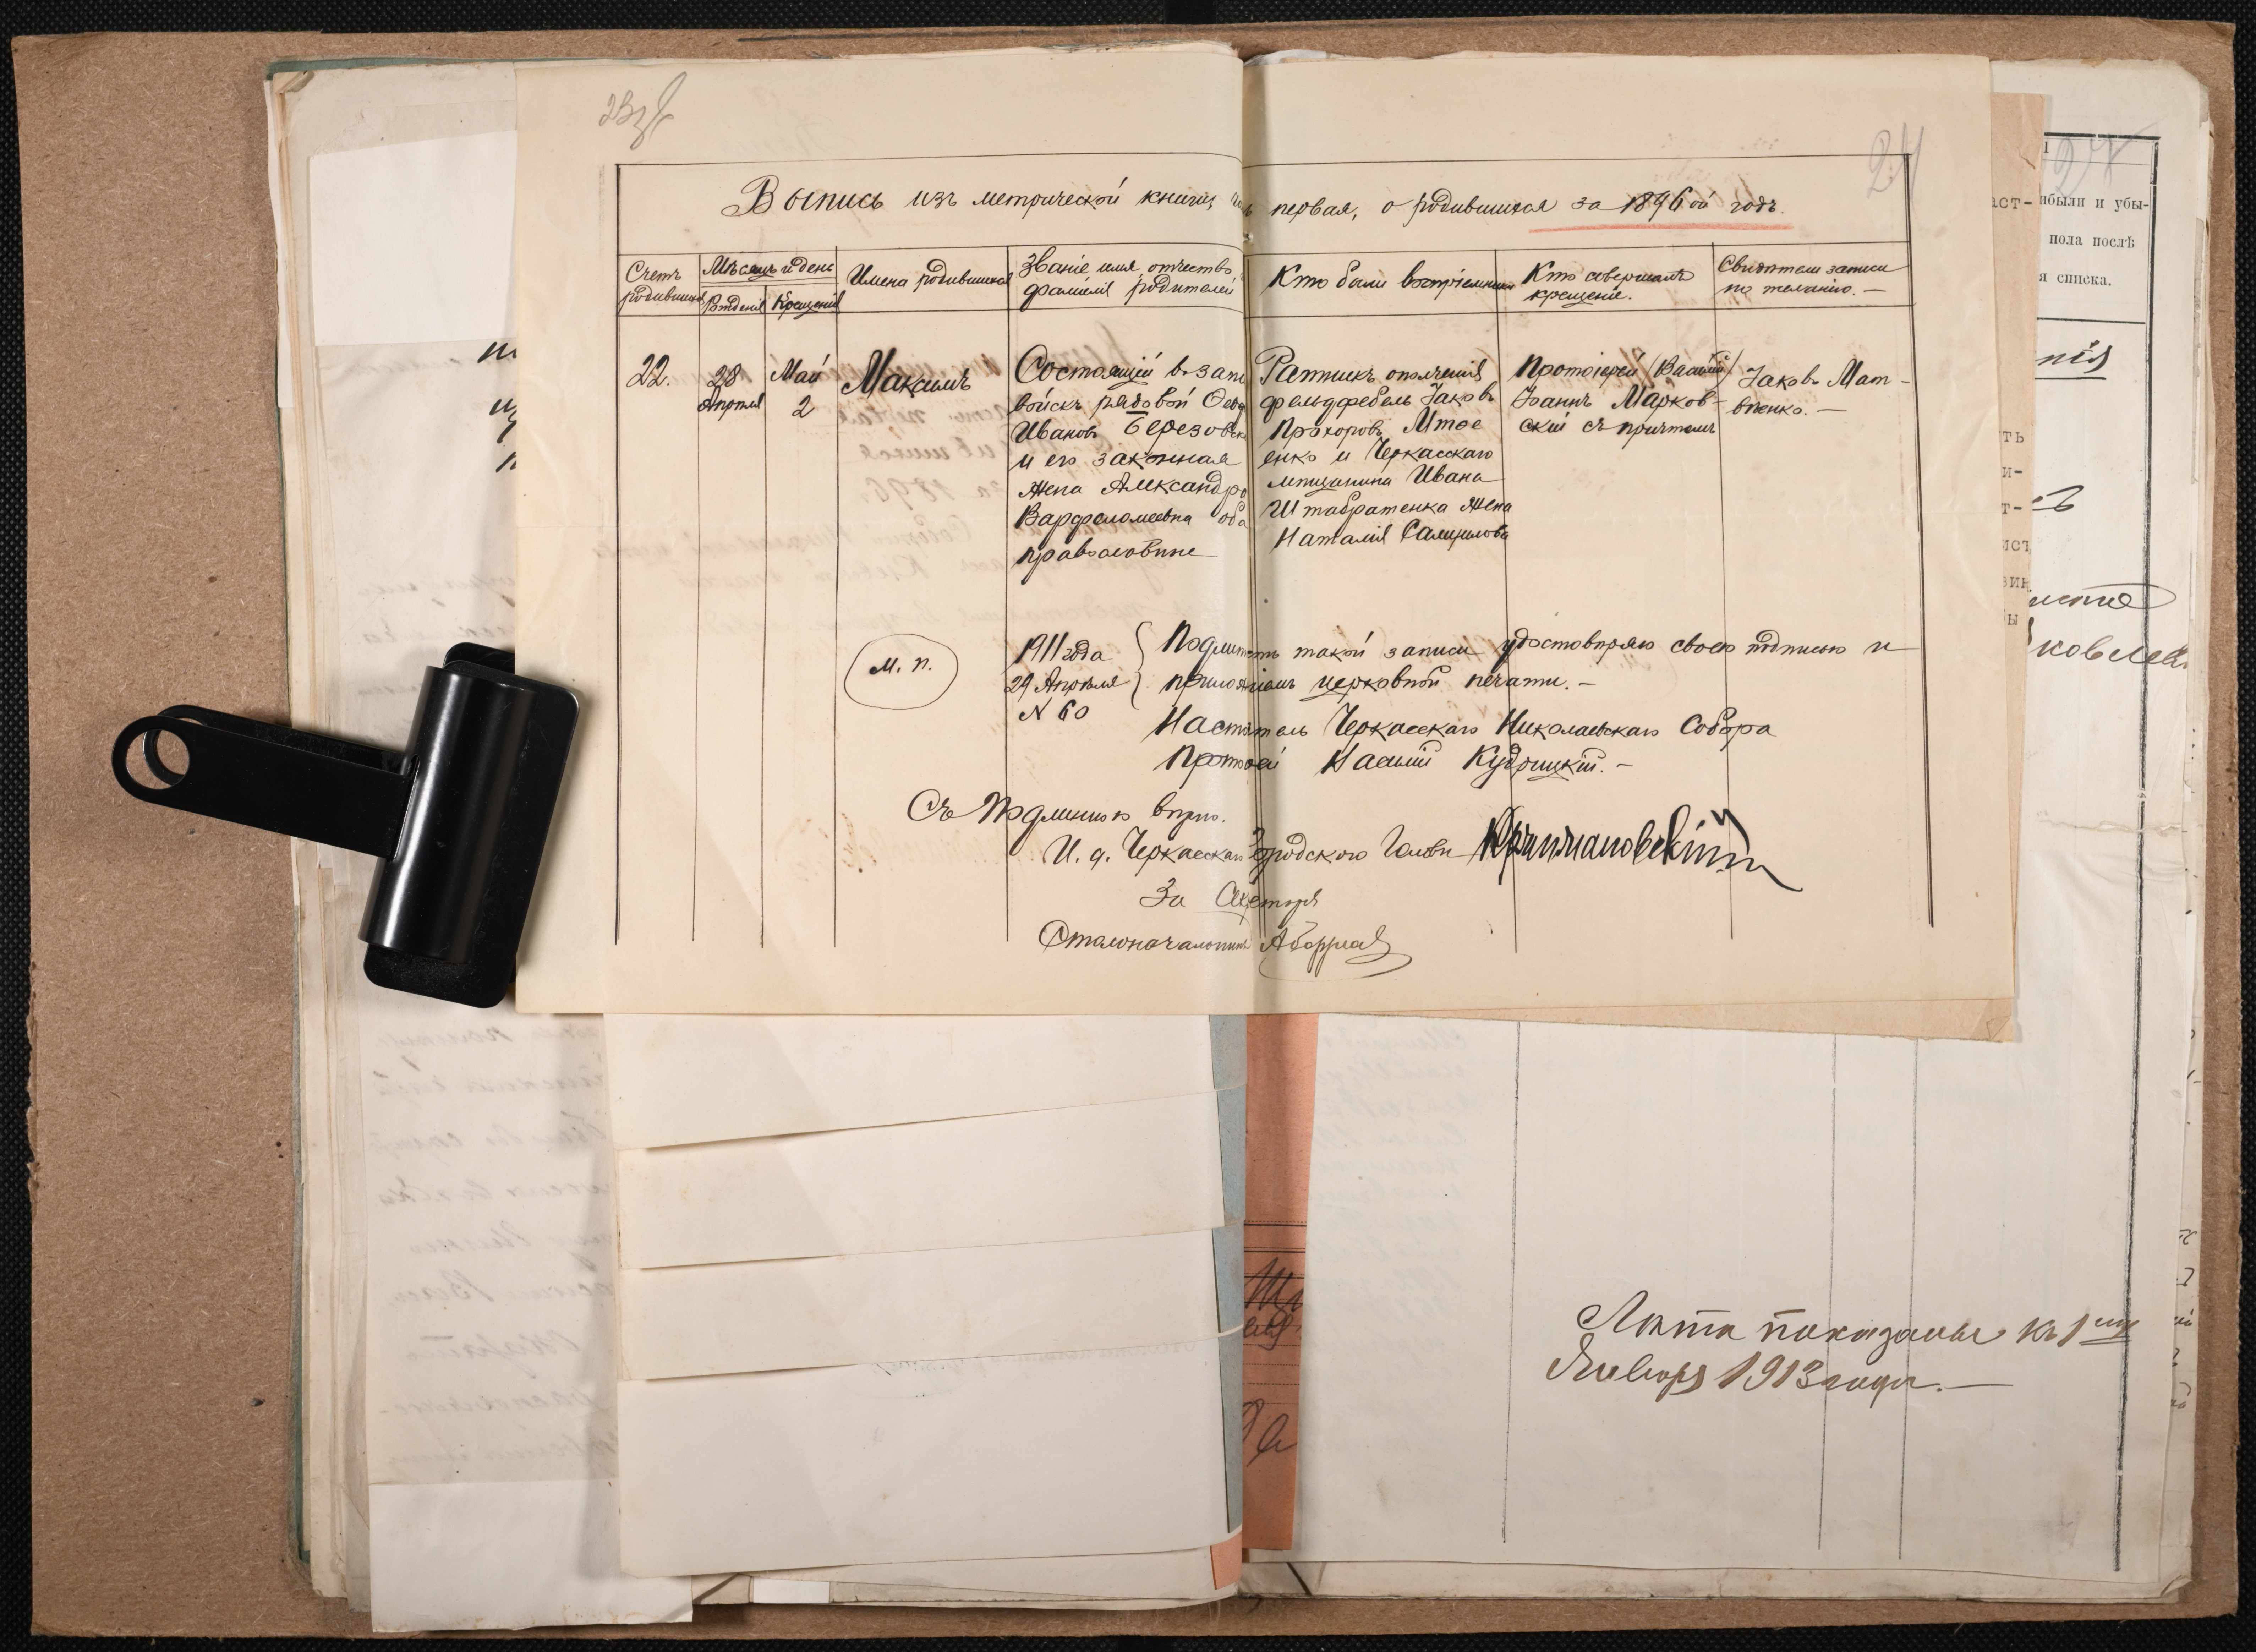 24
Выпись изъ метрической книги, часть первая, о родившихся за 1896ой годъ.
Счетъ родившихся
Мѣсяцъ и день
Рожденія
Крещенія
Имена родившихся
Званіе, имя, отчество, фамилія родителей
Кто были воспріемники
Кто совершалъ крещеніе.
Свидѣтели записи по желанію. —
22.
28 Апрѣля
Май 2
Максимъ
Состоящій в запа
войскъ рядовой
Ивановъ Березовск
и его законная
жена Александра
Варфоломеевна оба
православные
Ратникъ ополченія
фельдфебель Іаковъ
Прохоровъ
енко и Черкасскаго
мѣщанина Ивана
Штабратенка жена
Наталія Самуилова
Протоіерей (Васил)
Іоаннъ Марков-
скій съ причтомъ
Іаковъ Мат-
вѣенко. —
М. П.
1911 года
29 Апрѣля
N 60
Подлинность такой записи удостовѣряю своею подписью и
приложеніемъ церковной печати. —
Настоятель Черкасскаго Николаевскаго Собора
Протоіерей Василій Кудрицкій. —
Съ подлиннымъ вѣрно.
И. д. Черкасскаго Городского Головы
За Секретаря
Столоначальникъ
ибыли и убы-
пола послѣ
я списка.
Лѣта показаны къ 1му
Января 1913 года. —